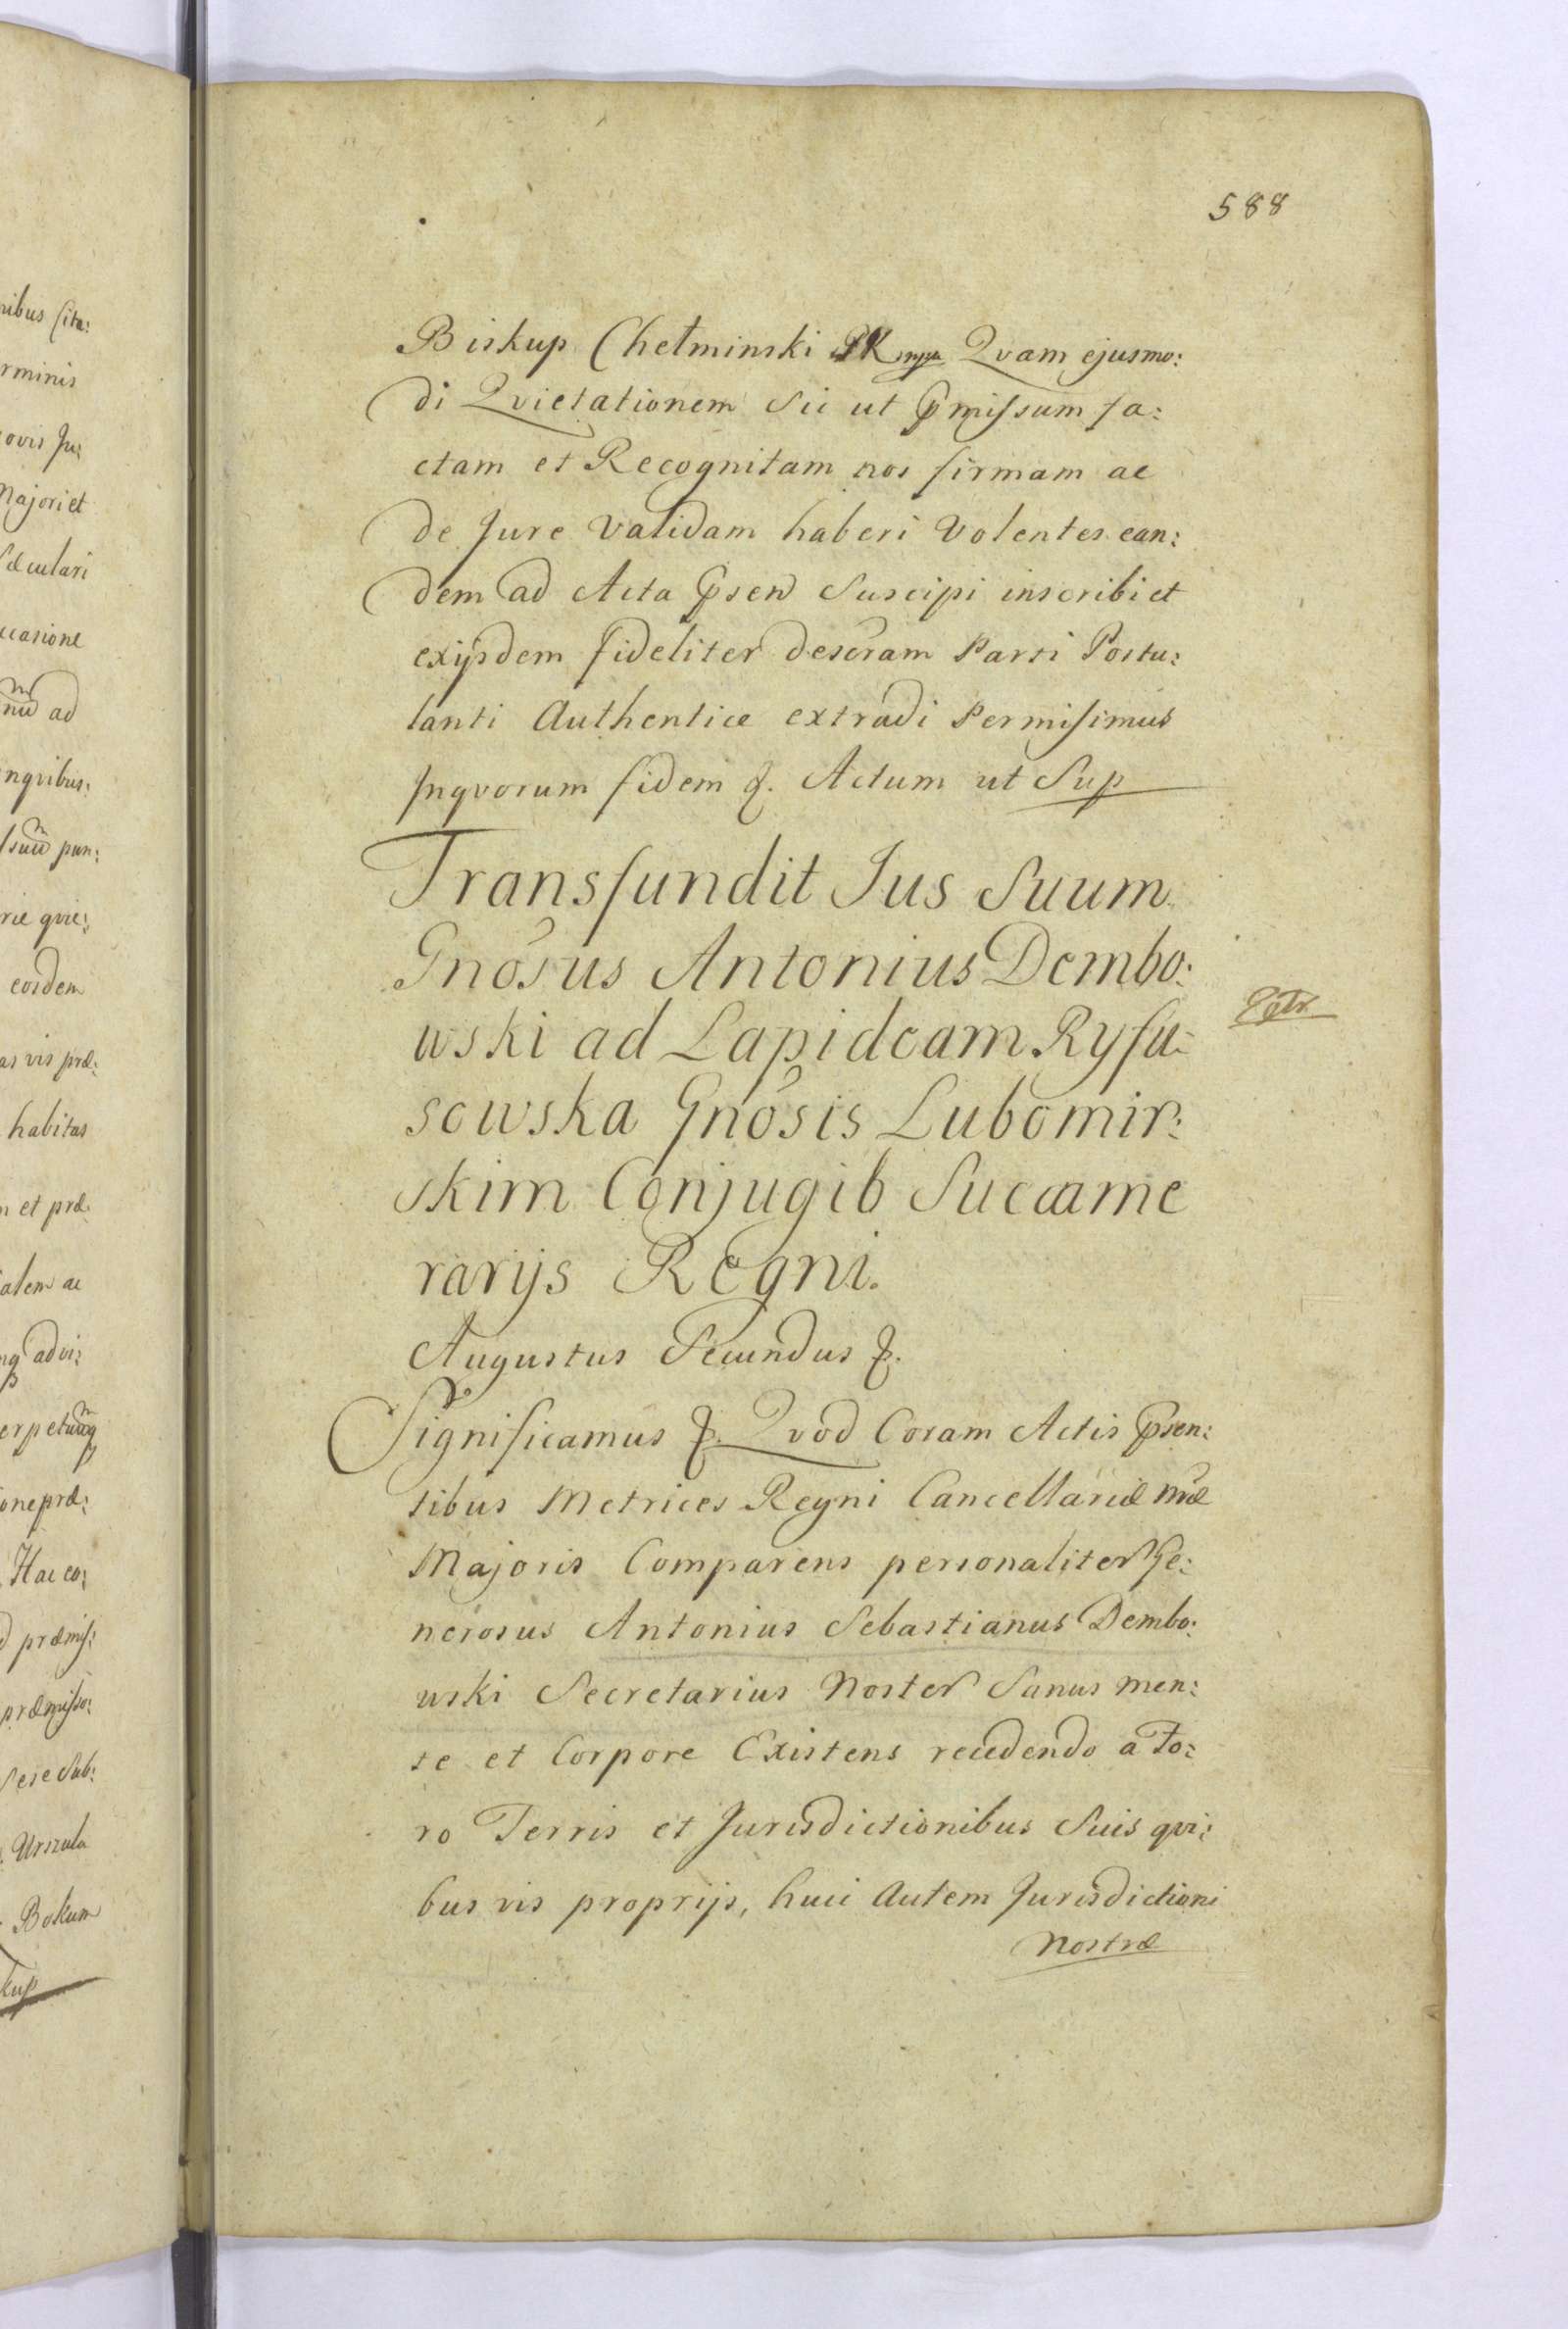 588
Biskup Chełminski PK mpp Qvam ejusmo:
di Qvietationem Sic ut Pmissum fa:
ctam et Recognitam nos firmam ac
de Jure Validam haberi Volentes ean:
dem ad Acta Psen Suscipi inscribi et
exijsdem fideliter descram Parti Postu:
lanti Authentice extradi Permisimus
Inqvorum fidem &. Actum ut Sup
Transfundit Jus Suum
Gnosus Antonius Dembo:
wski ad Lapideam Ryfu:
sowska Gnosis Lubomir:
skim Conjugib Succame
rarijs Regni.
Augustus Secundus &.
Significamus &. Qvod Coram Actis Psen:
tibus Metrices Regni Cancellariæ nræ
Majoris Comparens personaliter Ge:
nerosus Antonius Sebastianus Dembo:
wski Secretarius Noster Sanus men:
te et Corpore Existens recedendo a Fo:
ro Terris et Jurisdictionibus Suis qvi:
bus vis proprijs, huic Autem Jurisdictioni
Nostræ
nibus Cita:
rminis
ovis Ju:
Majori et
Sæculari
ccasione
ad
nqvibus:
pun:
rie qvie:
eosdem
as vis præ:
habitas
et præ
alem ac
advi:
one præ:
Hac co:
præmis:
præmisso:
sese Sub:
Urszula
Bokum
kup